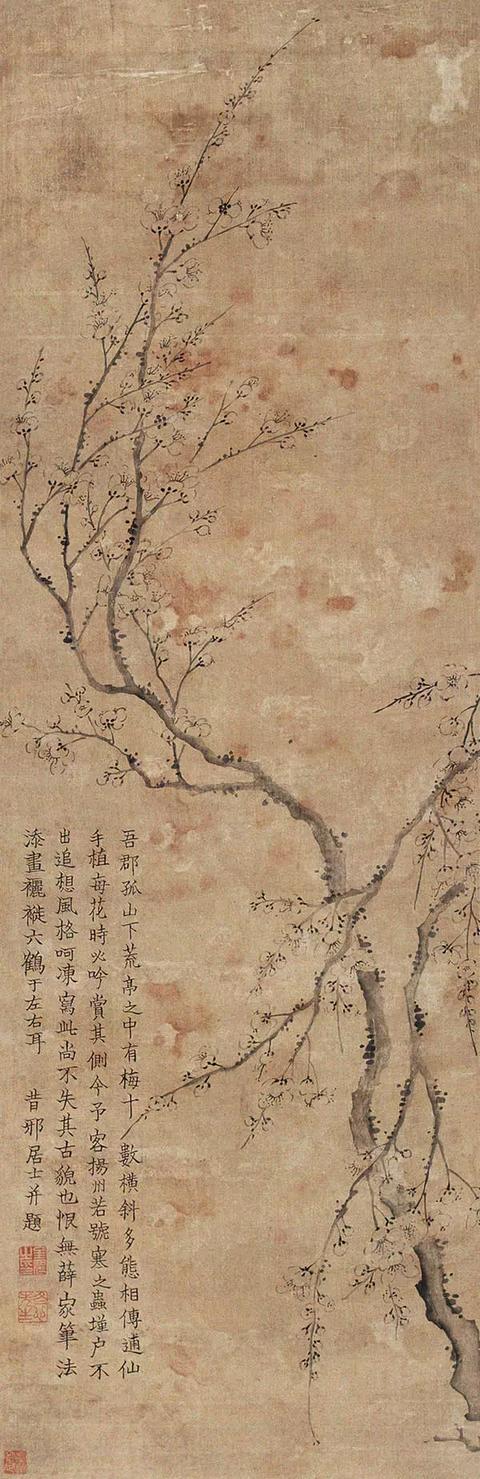 吾郡孤山下荒亭之中有梅十數橫斜多態相傳逋仙
手植每花時必吟賞其側今予客揚州若號寒之蟲墐户不
出追想風格呵凍寫此尚不失其古貌也恨無薛家筆法
添畫襹褷六鶴于左右耳 昔邪居士并題